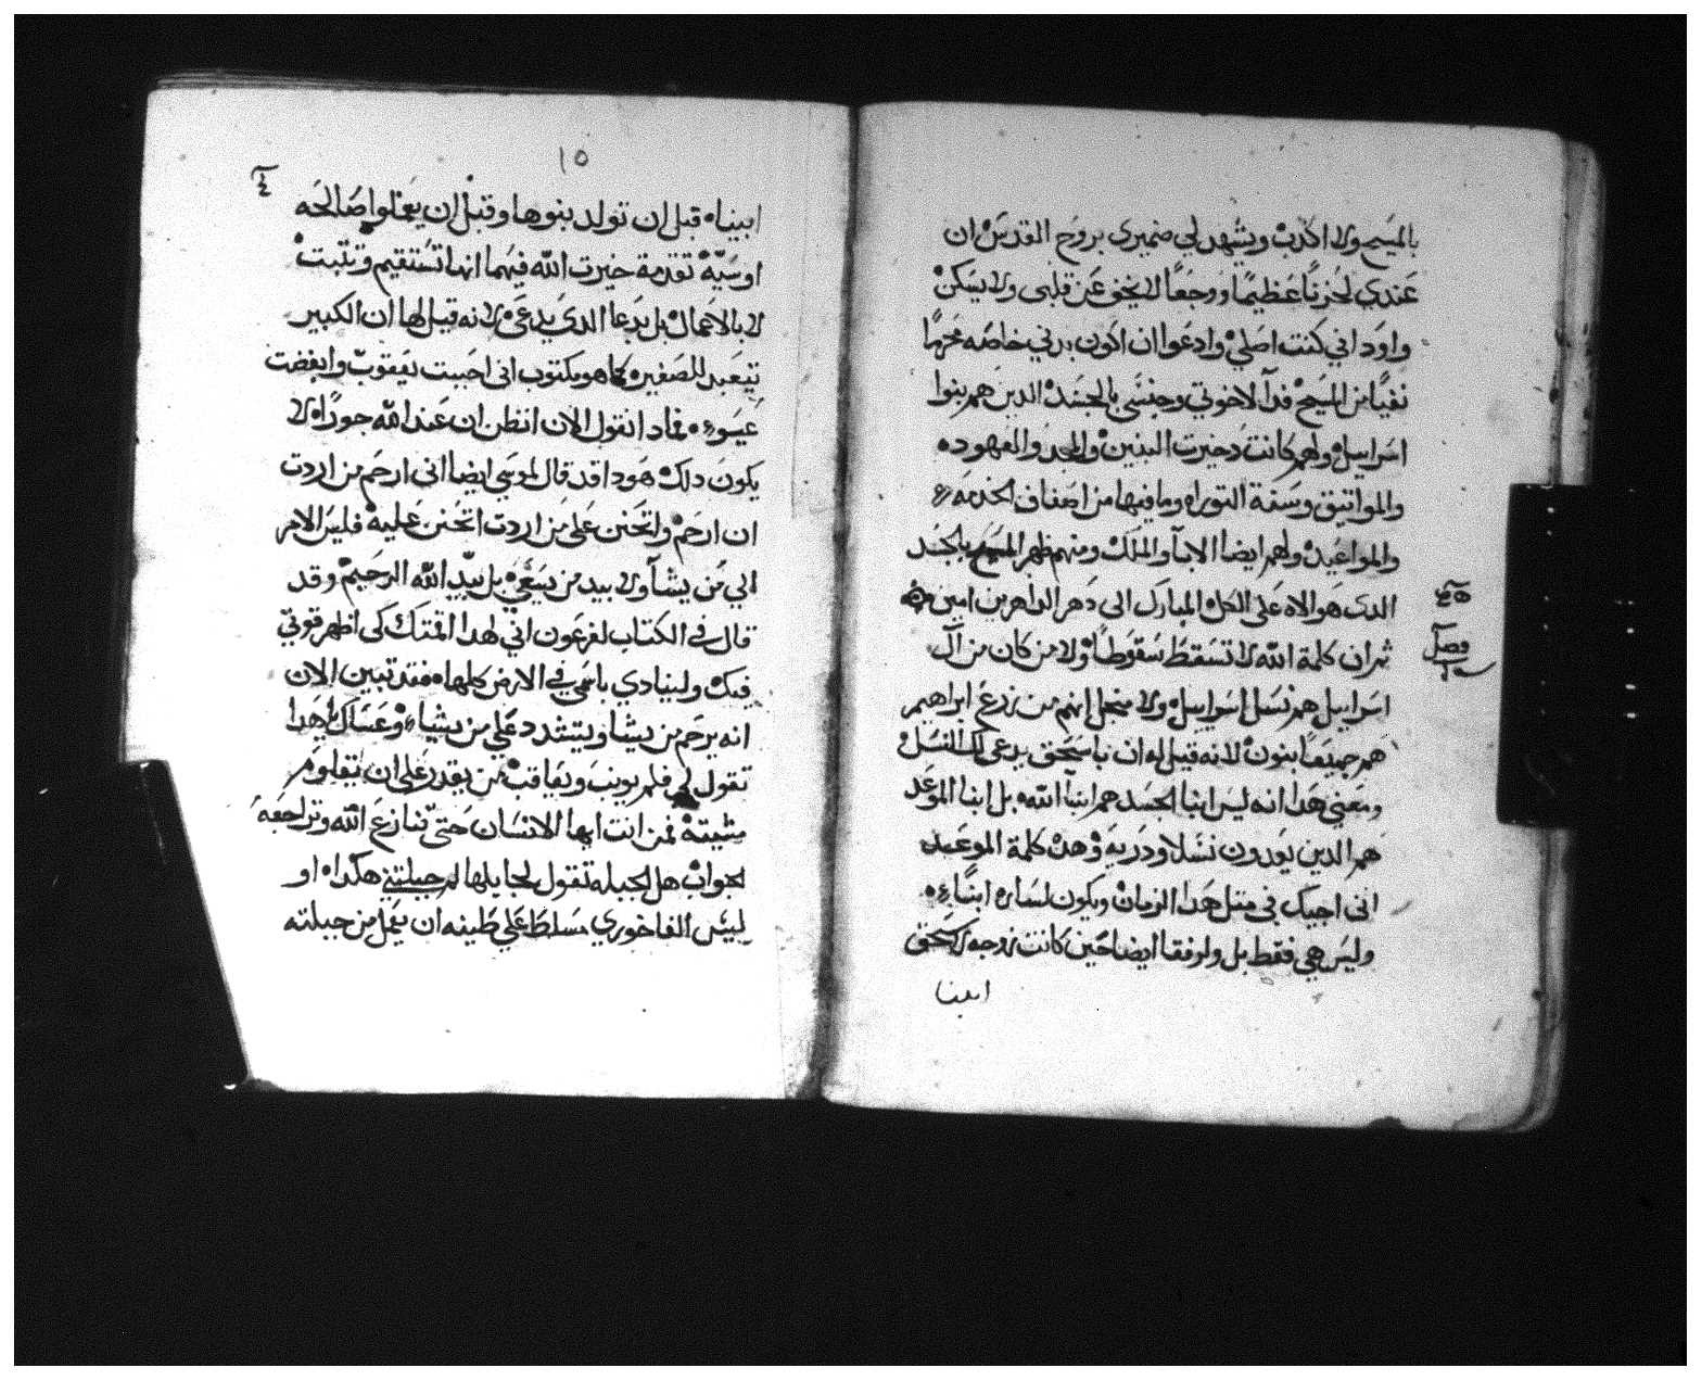 بالمسيح ولا اكدب ويشهد لي ضميرى بروح القدس ان
عندي لحزنًا عظيمًا ووجعًا لا يخف عن قلبى ولا يسكن
واود اني كنت اصلي وادعوا ان اكون بدني خاصه محرمًا
نفيًا من المسيح فدآ لاخوتي وجنسى بالجسد الدين هم بنوا
اسراييل ولهم كانت دخيرت البنين والمجد والعهوده
والمواتيق وسنة التوراه وما فيها من اصناف الخدمه
والمواعيد ولهم ايضا الابآ والملك ومنهم ظهر المسيح بالجسد
الدى هو الاه على الكل المبارك الى دهر الداهرين امين
فصل
ثم ان كلمة الله لا تسقط سقوطًا ولا من كان من آل
اسراييل هم نسل اسراييل ولا انهم من زرع ابراهيم
هم جميعًا بنون لانه قيل له ان باسحق يدعى لك النسل
ومعني هدا انه ليس ابنا الجسد هم ابنآ الله بل ابنا الموعد
هم الدين يعدون نسلا ودريه وهده كلمة الموعد
انى اجيك فى متل هدا الزمان ويكون لساره ابنًا
وليس هي فقط بل ولرفقا ايضا حين كانت زوجه لاسحق
ابينا
١٥
ابيناه قبل ان تولد بنوها وقبل ان يعملوا صالحه
او سيّة تقدمة خيرت الله فيهما انها تستقيم وتتبت
لا بالاعمال بل بدعا الدى يدعى لانه قيل لها ان الكبير
تيعبد للصغير كما هو مكتوب انى احببت يعقوب وابغضت
عيسو فمادا نقول الان انظن ان عند الله جورًا لا
يكون دلك هودا قد قال لموسي ايضا انى ارحم من اردت
ان ارحم واتحنن على من اردت اتحنن عليه فليس الامر
الي من يشآ ولا بيد من يسعى بل بيد الله الرحيم وقد
قال في الكتاب لفرعون اني لهدا اقمتك كى اظهر قوتي
فيك ولينادي باسمي في الارض كلها فقد تبين الان
انه يرحم من يشا ويتشدد علي من يشا وعساك هدا
تقول لي فلم يونب ويعاقب من يقدر على ان يقاوم
مشيته فمن انت ايها الانسان حتى تنازع الله وتراجعه
لجواب هل الجبله تقول لجابلها لم جبلتني هكدا او
ليس الفاخوري مسلط علي طينه ان يعمل من جبلته